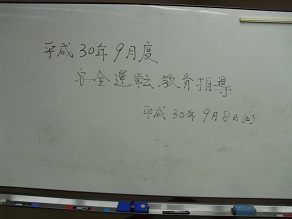 平成30年9月度
安全運転教育指導
平成30年9月8日(土)